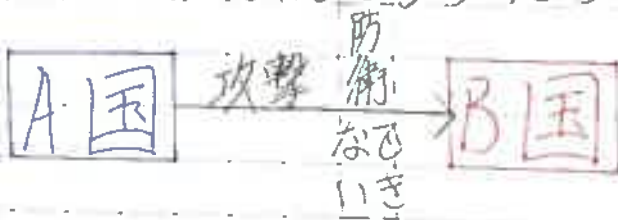 A国
攻撃
防衛
でき
ない
B国